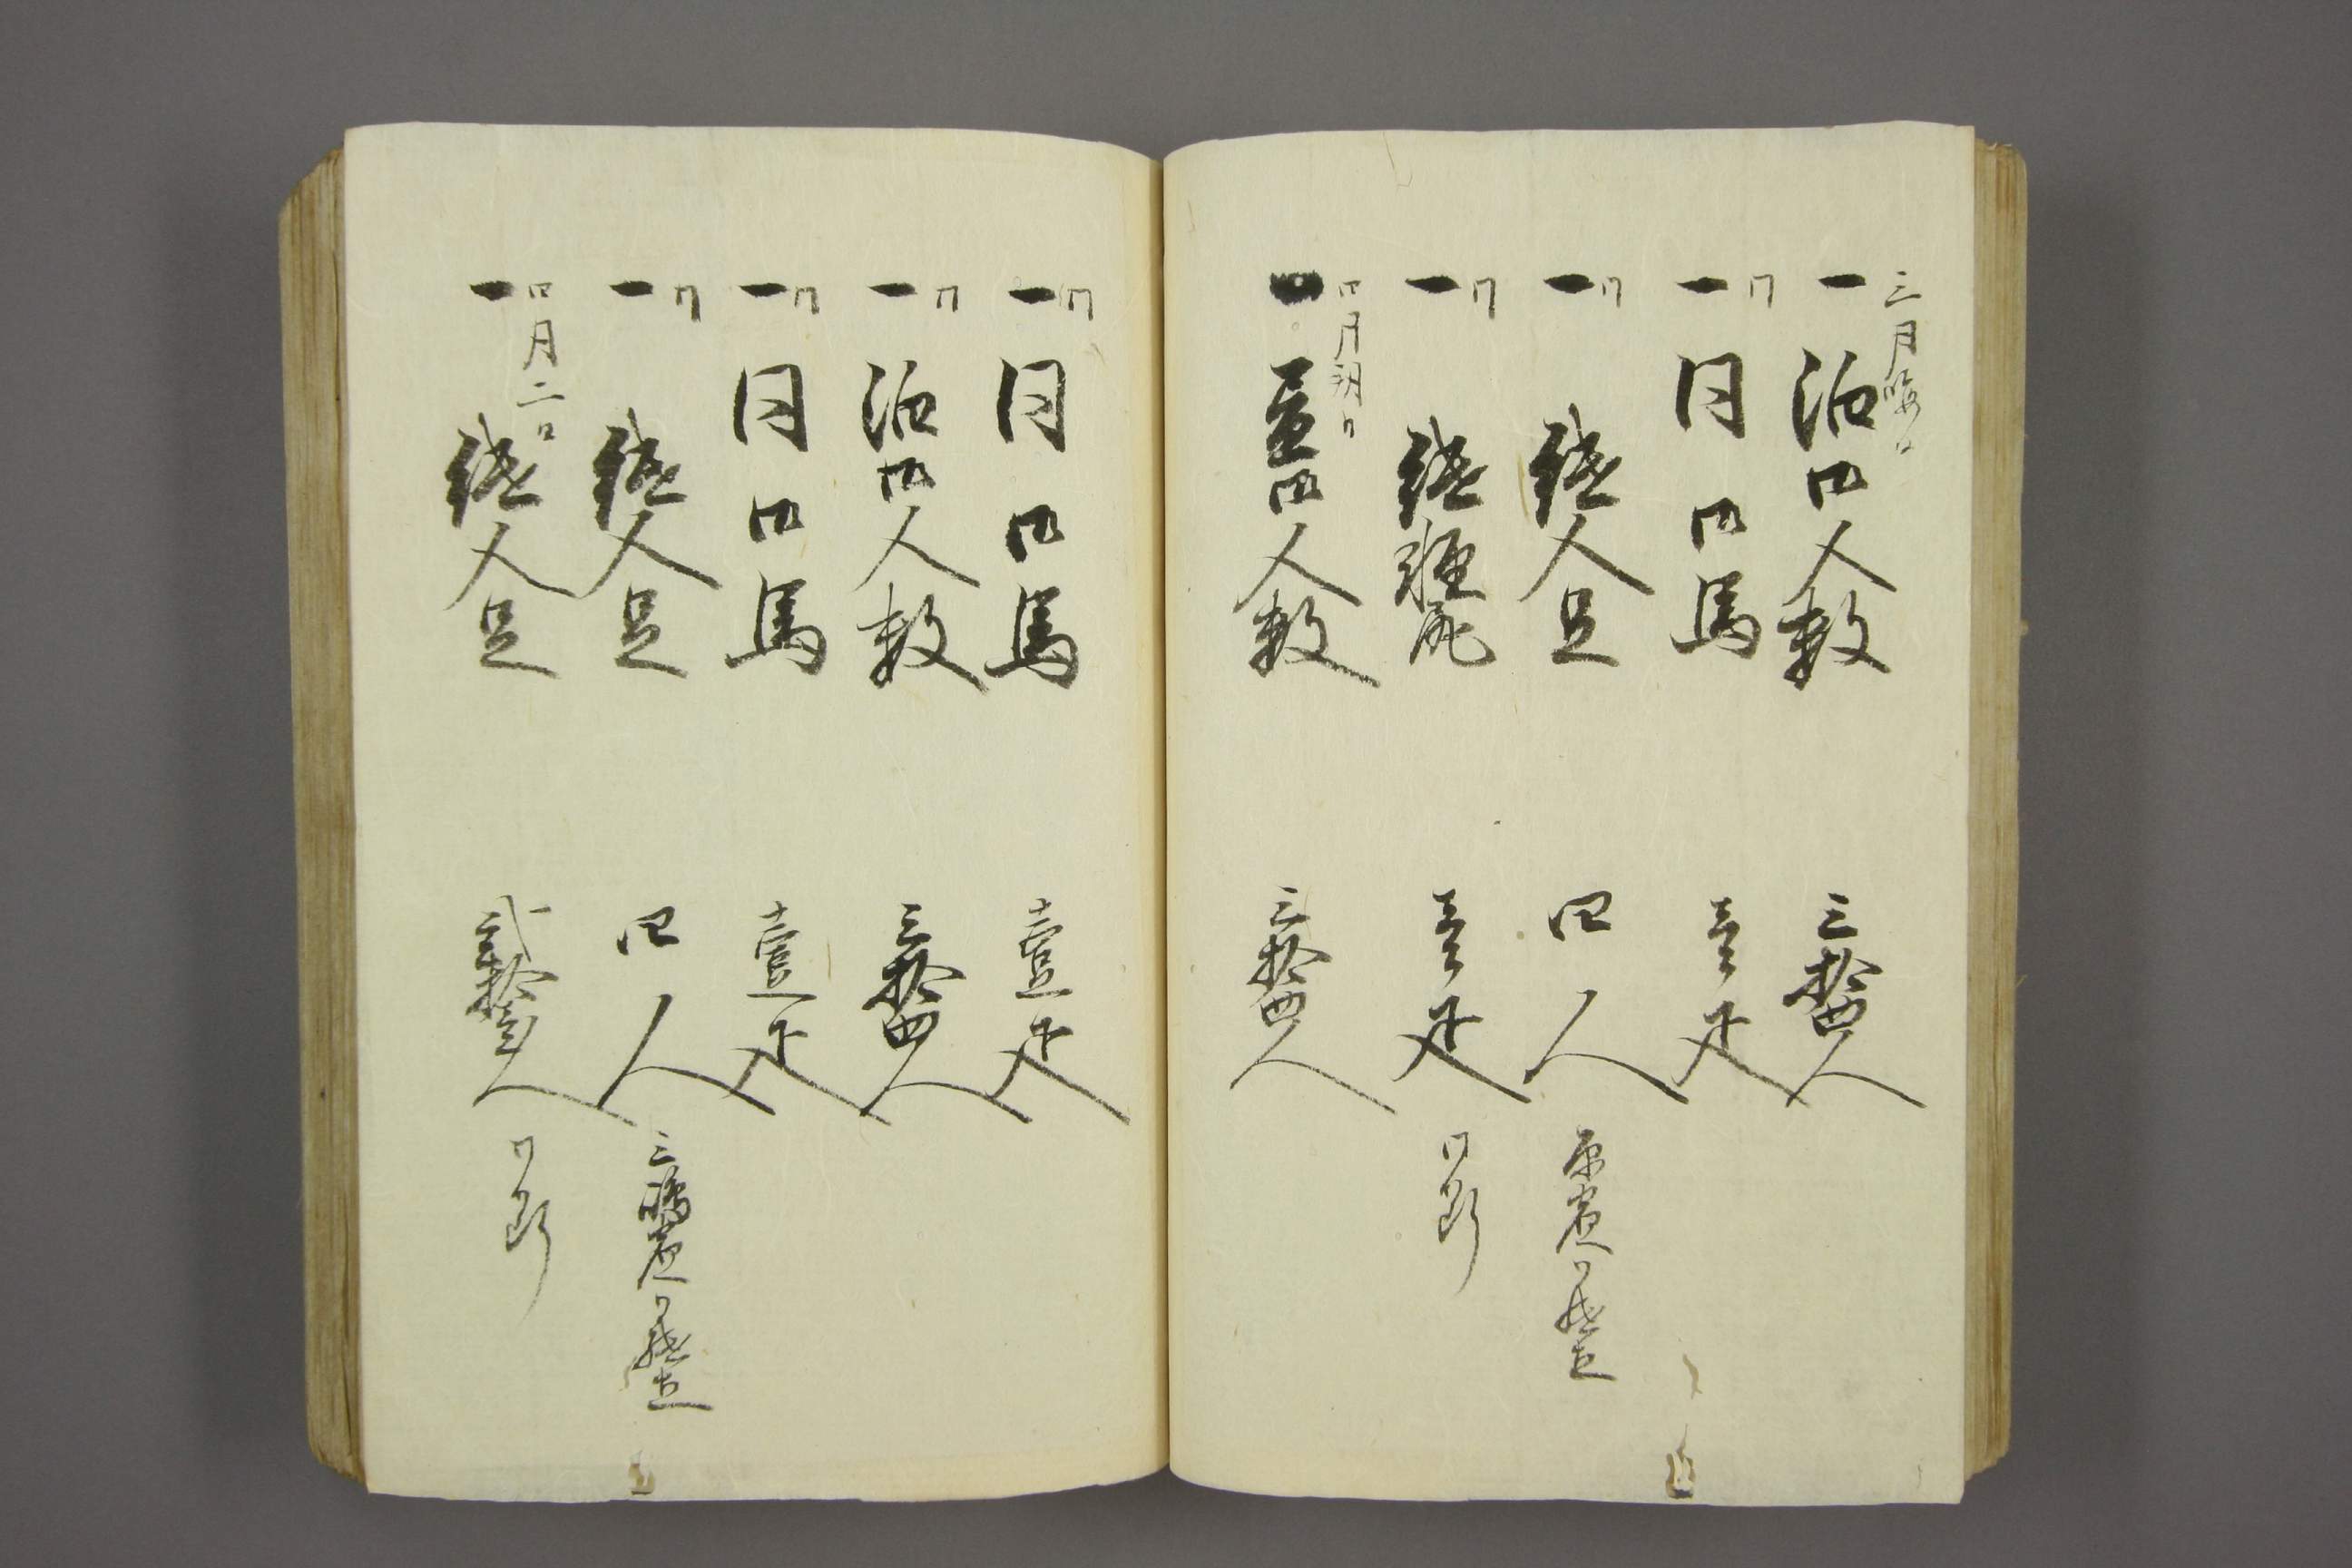 三月晦日
一 泊御人数 三拾四人
同
一 同御馬 壱疋
同
一 継人足 四人 原宿ゟ継立
同
一 継軽尻 壱疋 同断
四月朔日
一 昼御人数 三拾四人
同
一 同御馬 壱疋
同
一 泊御人数 三拾四人
同
一 同御馬 壱疋
同
一 継人足 四人 三嶋宿ゟ継立
四月二日
一 継人足 人 同断